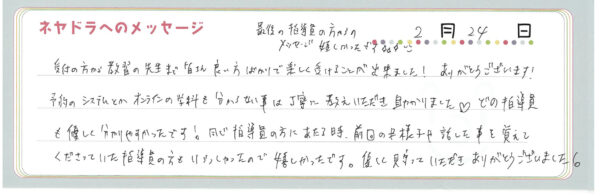 ネヤドラへのメッセージ
最後の指導員の方からの
メッセージ嬉しかったです
2月24日
受付の方から教習の先生まで皆さん良い方ばかりで楽しく受けることが出来ました！ありがとうございます！
予約のシステムとかオンラインの学科も分からない事は丁寧に教えいただき助かりました♡どの指導員
も優しく分かりやすかったです！同じ指導員の方にあたる時、前回の様子や話した事を覚えて
くださっていた指導員の方もいらっしゃったので嬉しかったです。優しく見守っていただきありがとうございました。